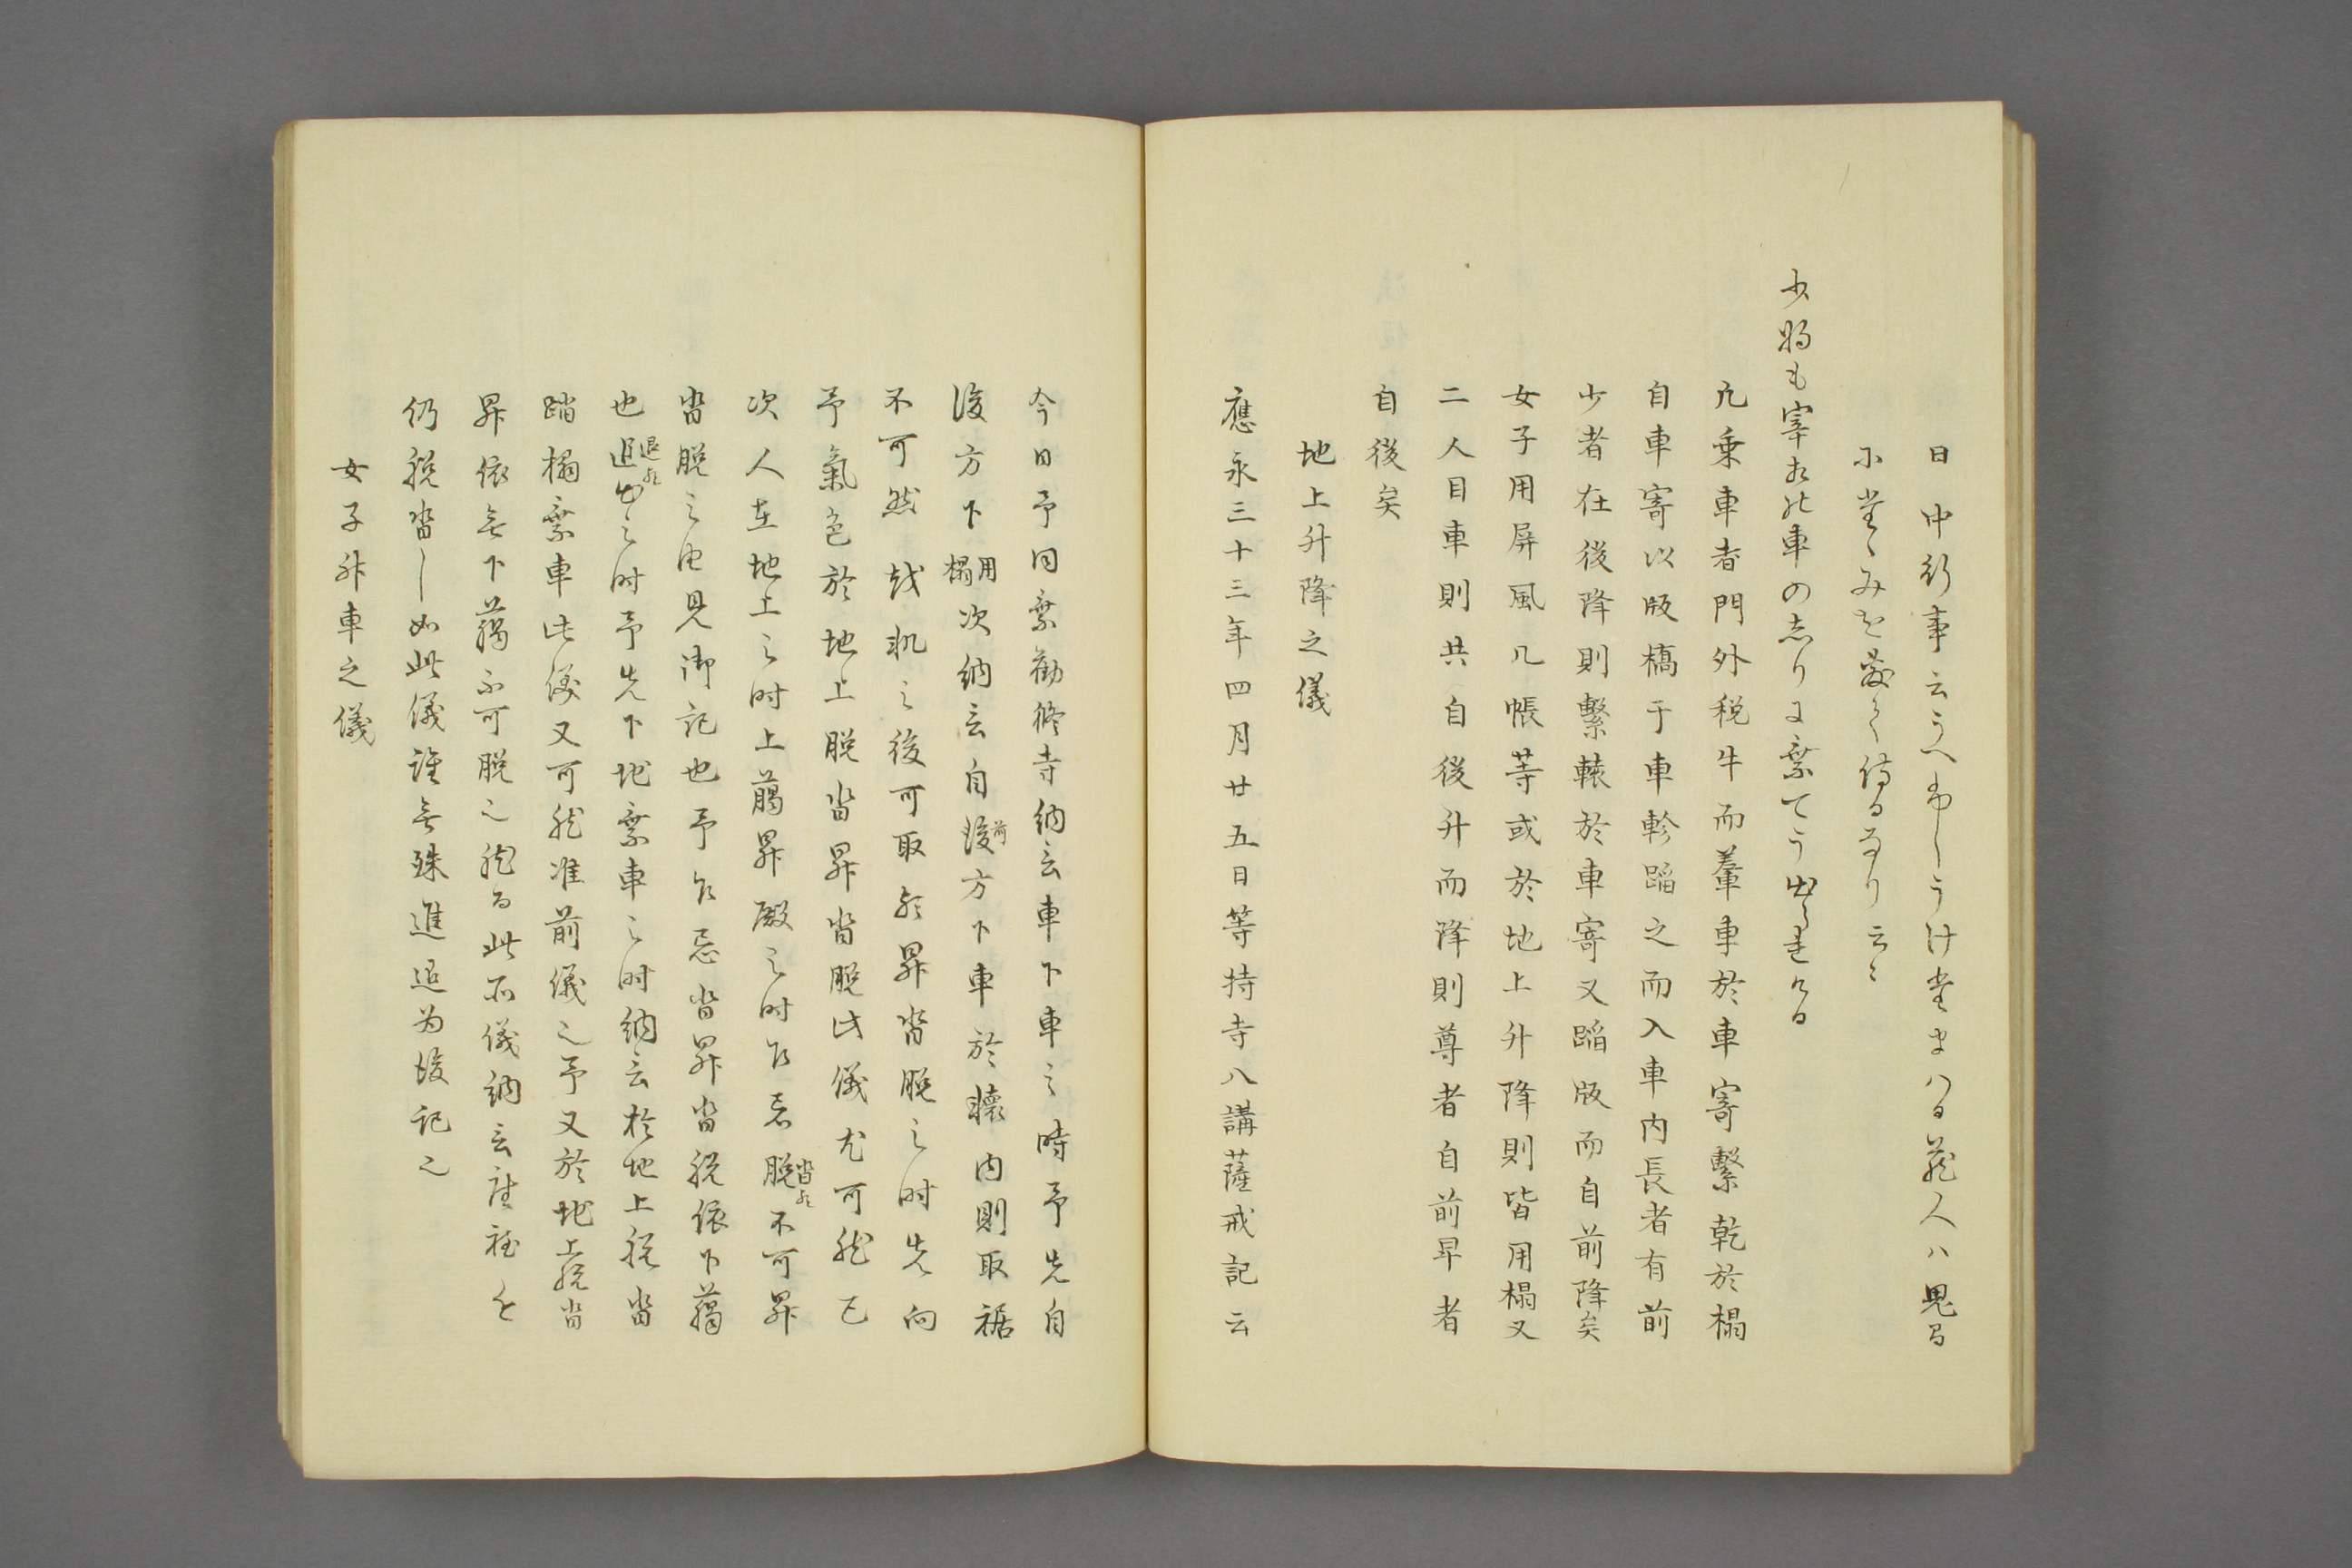 日中行事云うへ申しうけ給はる蔵人ハ鬼間
少将も宰相の車の志りに乗てう出
凡乗車者門外税牛而輦車於車寄繋乾於榻
自車寄以版橋于車軫蹈之而入車内長者有前
少者在後降則繋轅於車寄又蹈版而自前降矣
女子用屏風几帳等或於地上升降則皆用榻又
二人同車則共自後升而降則尊者自前卑者
自後矣
地上升降之儀
應永三十三年四月廿五日等持寺八講薩戒記云
今日予同乗勧修寺納言車下車之時予先自
後方下用榻次納言自後前方下車於轅内則取裾
不可然越軛之後可取欤昇沓脱之時先向
予氣色於地上脱沓昇沓脱此儀尤可然已
次人在地上之時上﨟昇殿之時乍着脱沓欤不可昇
沓脱之由見御記也予乍忘沓昇沓脱依下﨟
也退出退欤之時予先下地乗車之時納言於地上脱沓
踏榻乗車此儀又可然准前儀之予又於地上脱沓
昇依無下﨟不可脱之然而此示儀納言
仍脱沓了如此儀誰無殊進退為後記之
女子升車之儀